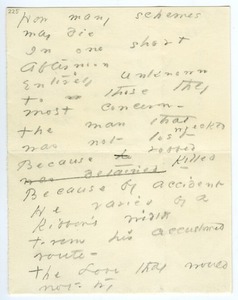 225
How many schemes
may die
In one short
Afternoon
Entirely unknown
to those they
most concern –
the man that
was not lost
Because robbed
killed
Because by accident
He varied by a
Ribbon's width
from his accustomed
route –
the Love that would
not try